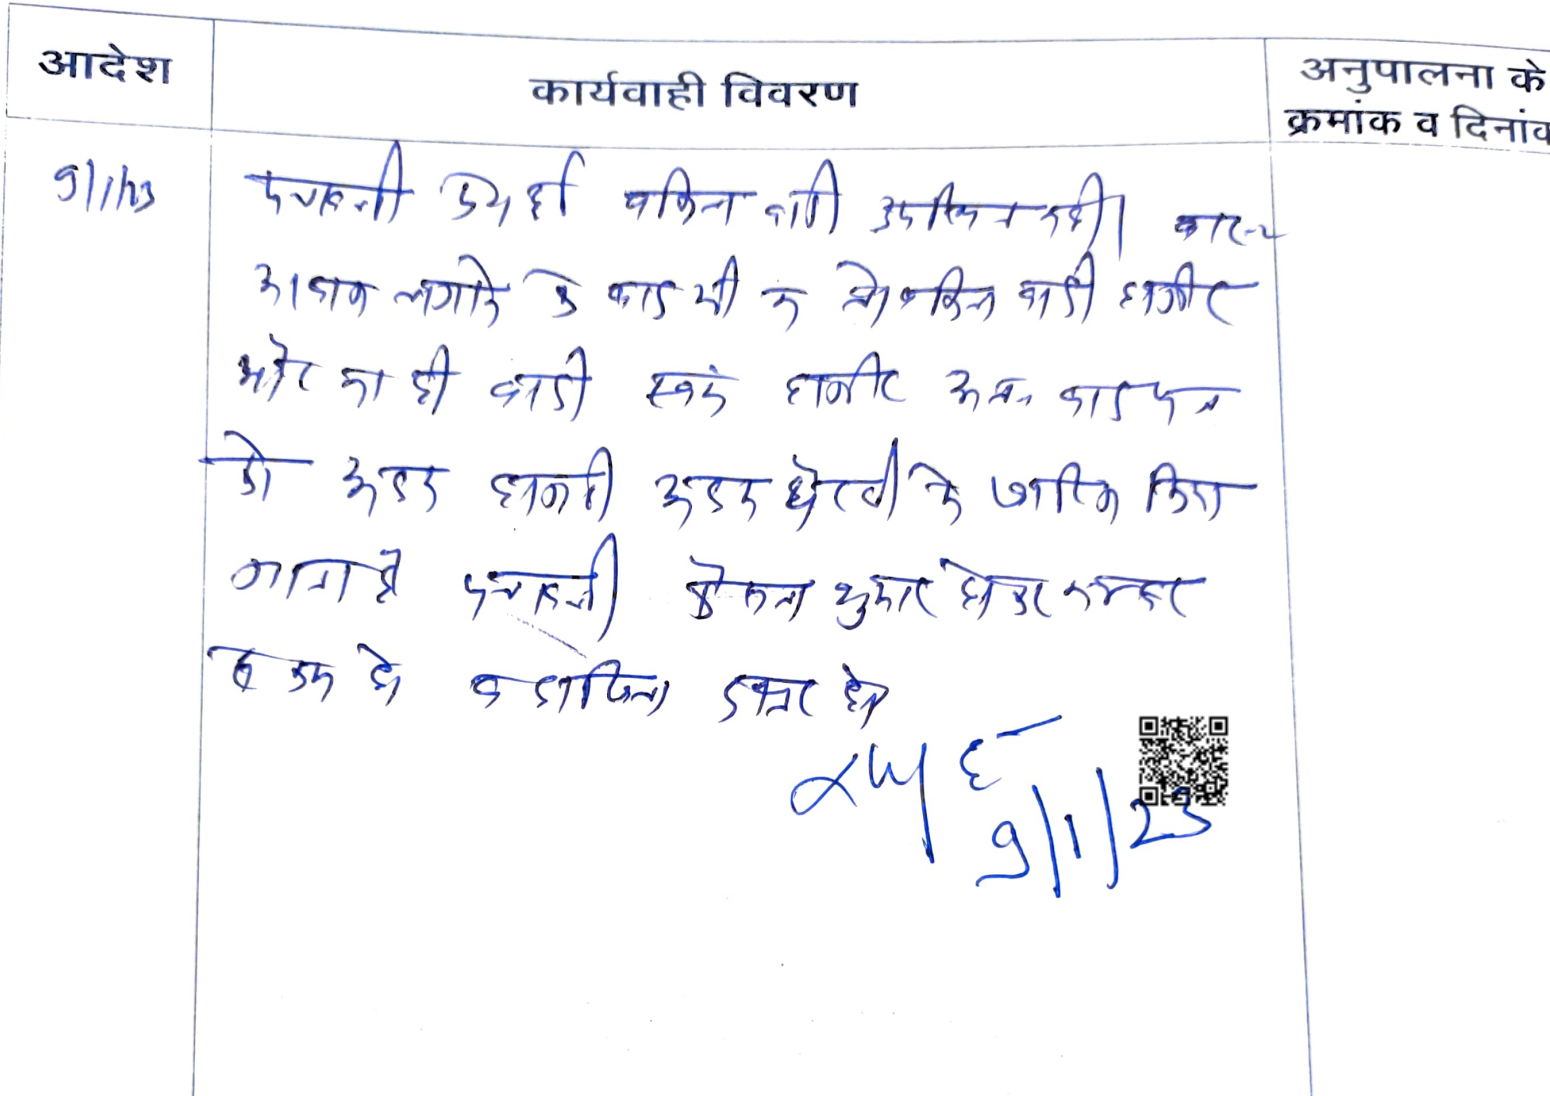 आदेश
कार्यवाही विवरण
अनुपालना के
क्रमांक व दिनांक
9/1/23
पत्रावली पेश हुई वकिल वादी उपस्थित नही। बार-२
आवाज लगाने के बाद भी न तो वकिल वादी हाजीर
और ना ही वादी स्वयं हाजीर अतः वाद पत्र
को अदम हाजरी अदम पैरवी मे खारिज किया
जाता है पत्रावली फैसल शुमार होकर नम्बर
से कम हो व दाखिल दफ्तर हो।
9/1/23